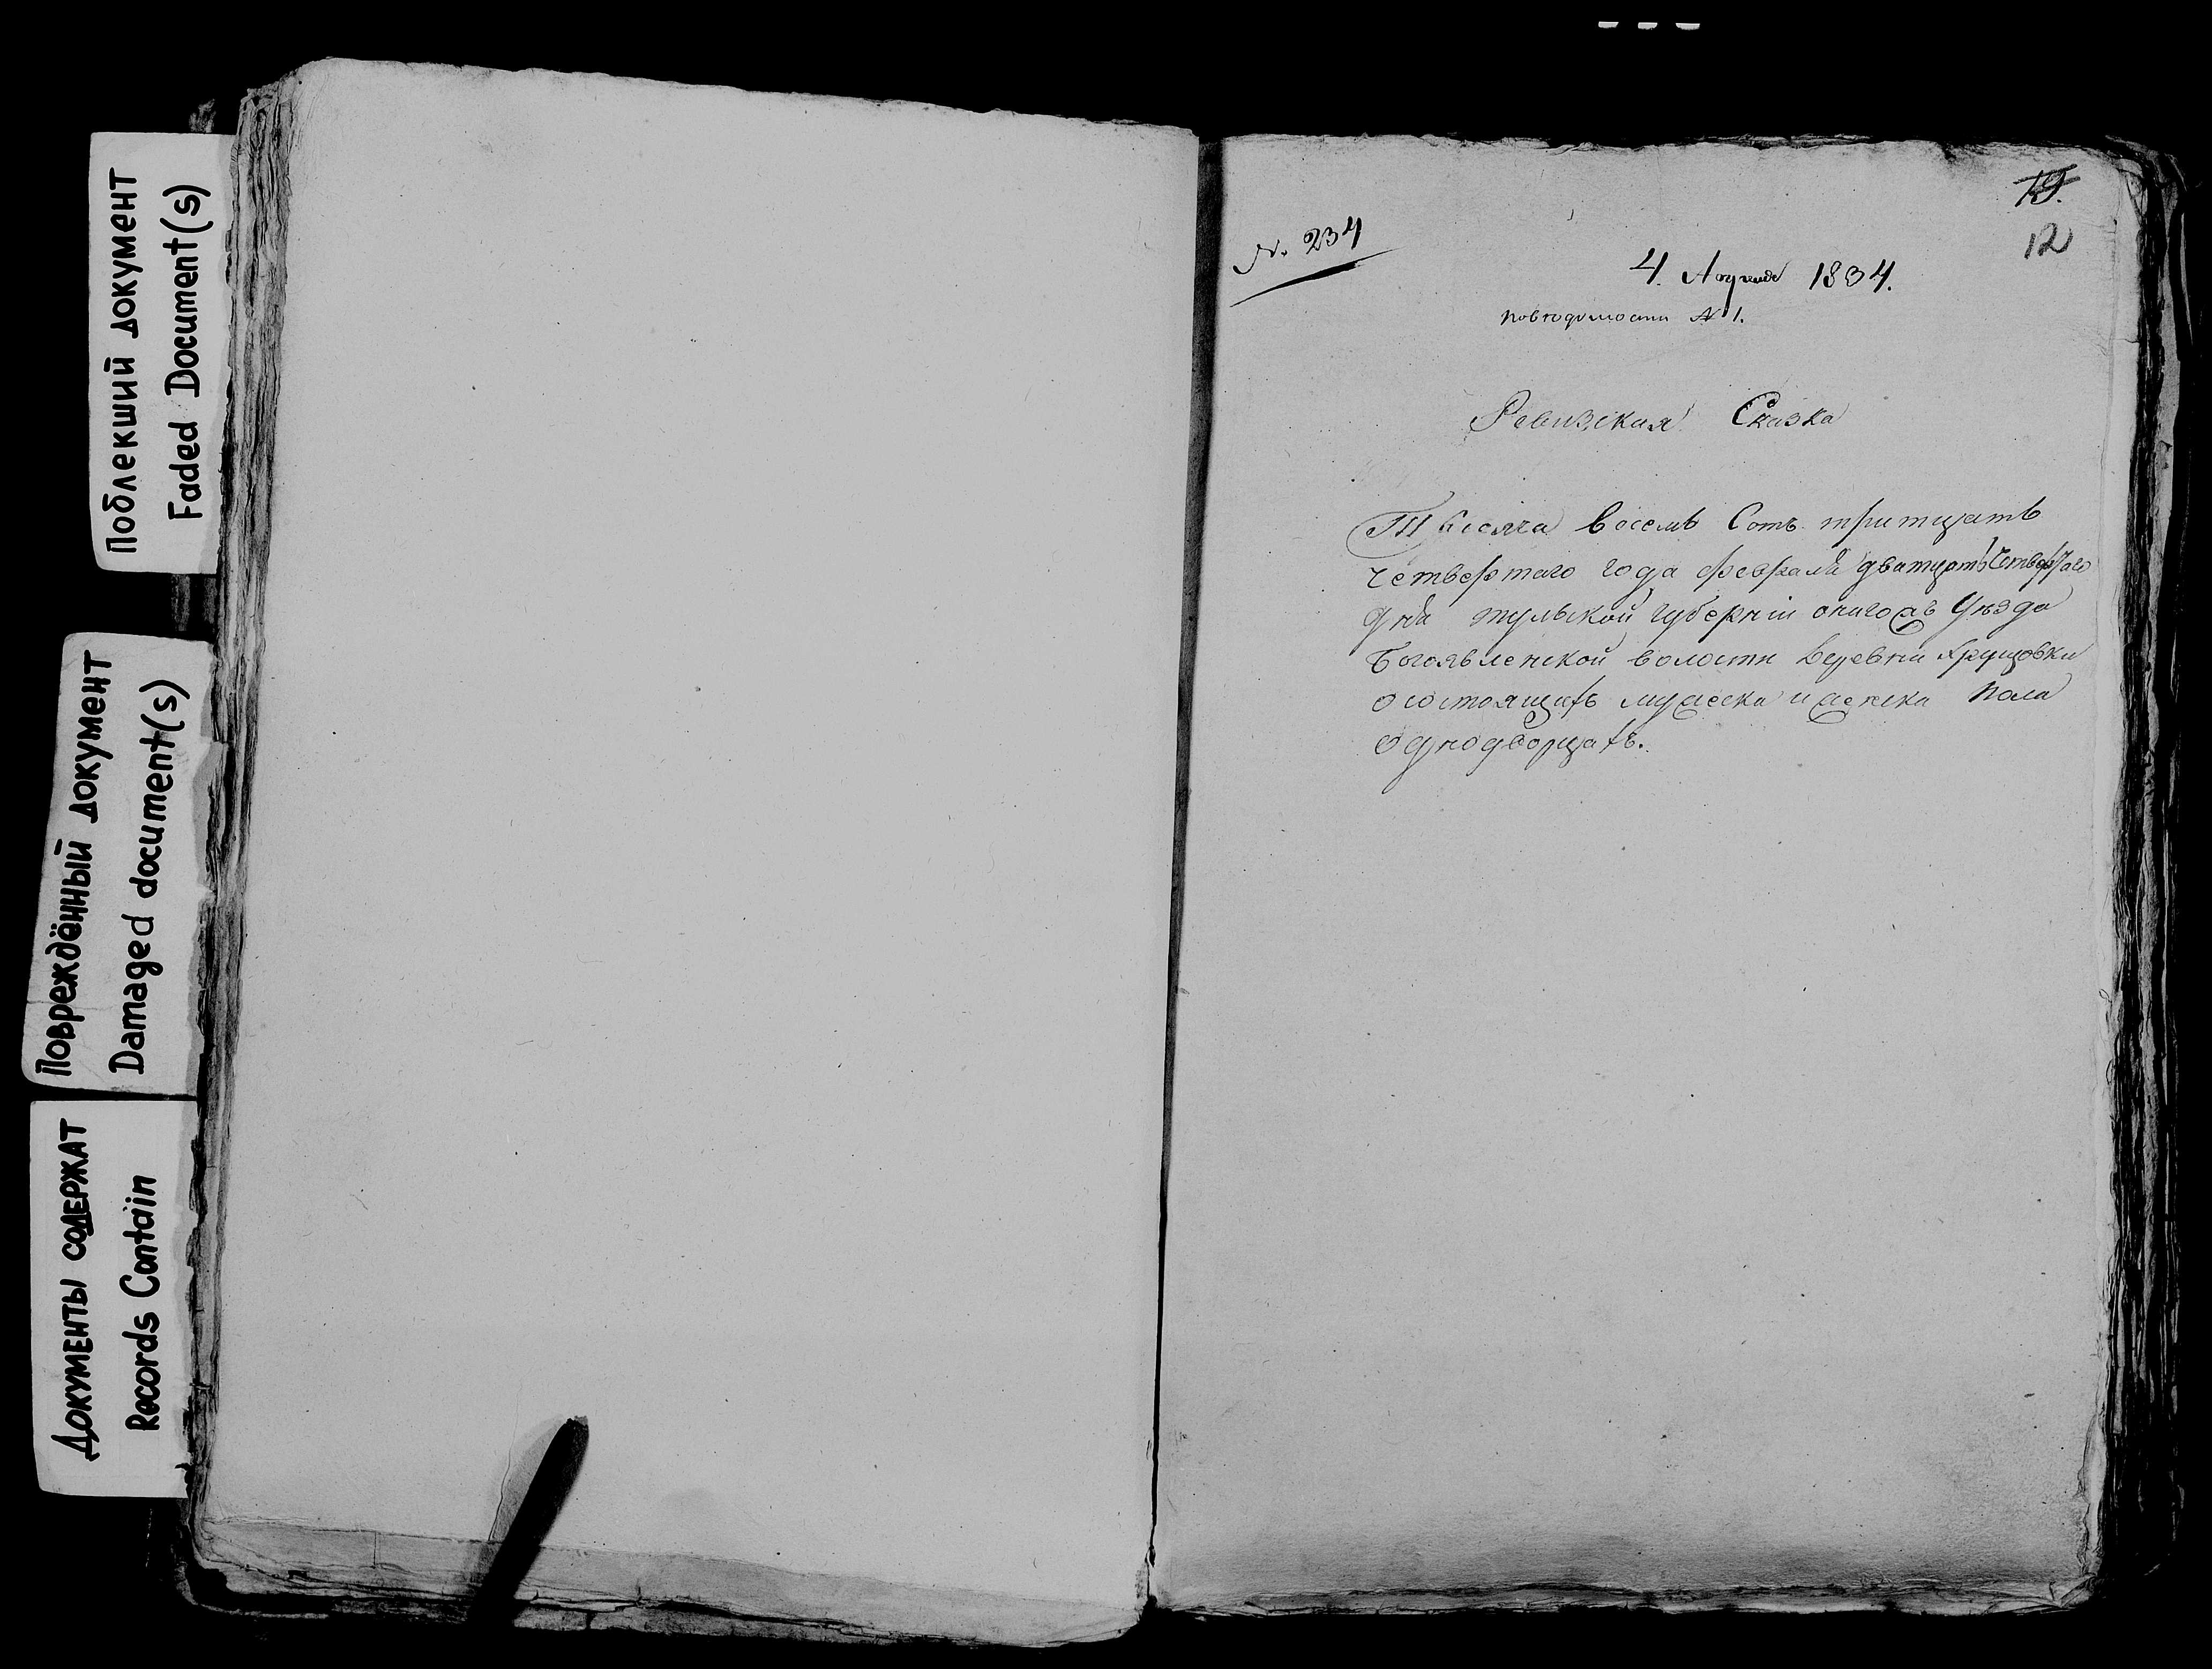 Поблекший документ
Faded Document(s)
Повреждённый документ
Damaged document(s)
Документы содержат
Records Contain
19.
12
N. 234
4. Апреля 1834.
N 1.
Ревизская Сказка
Тысяча восемь Сотъ тритцать
четвертаго года февраля дватцать Четвертаго
дня тульской губернии Уезда
Богоявленской волости Деревни Хрущовки
о состоящихъ мужеска и женска пола
однодворцахъ.